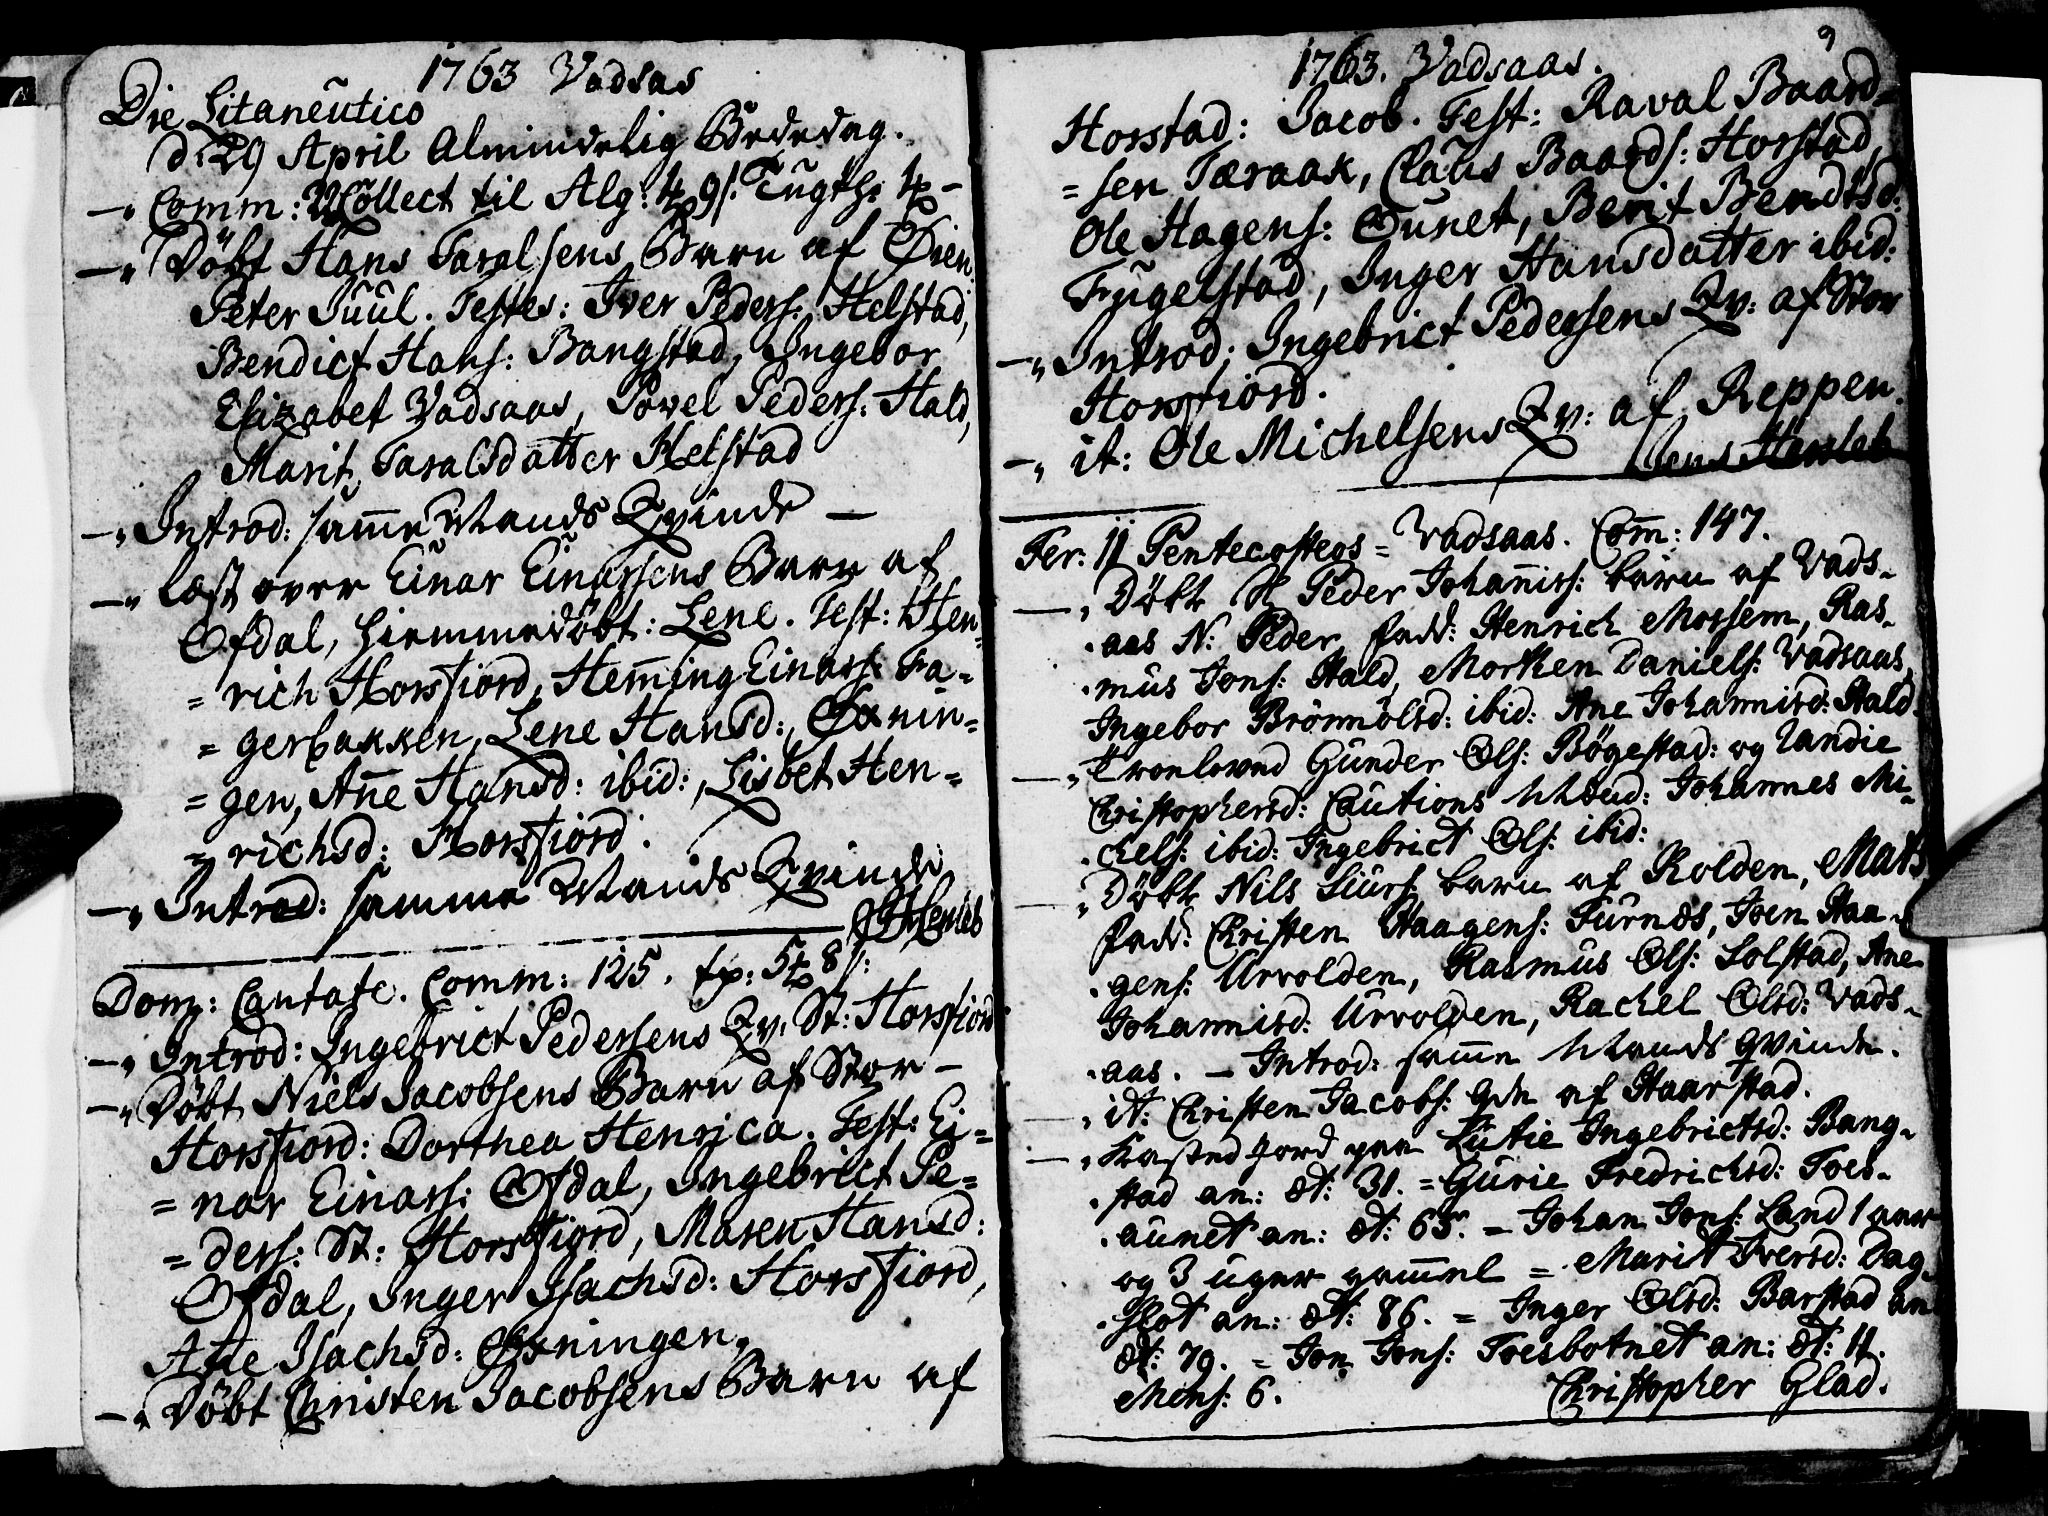 1763 Vadsas
Die Litaneutico
d: 29 April Almindelig Bededag.
—" Comm: Collect til Alg: 9 s. Tugth:
—" Döbt Hans Taralsens Barn af Öien:
Peter Juul. Testes: Iver Peders: Helstad,
Bendict Hans: Bangstad, Ingebor
Elizabet Vadsaas, Povel Peders: Hald,
Marit Taralsdatter Helstad
—" Introd: samme Mands Qvinde —
—" Læst over Einar Einarsens Barn af
Ofdal, hiemmedöbt: Lene. Test: Hen-
=rich Horsfiord, Hemming Einars: Fa-
=gerbakken, Lene Hansd: Öxnin-
=gen, Ane Hansd: ibid:, Lisbet Hen=
=richsd: Horsfiord.
—" Introd: samme Mands Qvinde
Dom: Cantate. Comm: 125. 8 s:
—" Introd: Ingebrict Pedersens Qv. St: Horsfiord
—" Döbt Niels Jacobsens Barn af Stor-
Horsfiord: Dorthea Henrica. Test: Ei=
=nar Einars: Ofdal, Ingebrict Pe=
=ders: St: Horsfiord, Maren Hansd:
Ofdal, Inger Isachsd: Horsfiord,
Isachsd: Öxningen,
—" Döbt Christen Jacobsens Barn af
9
1763. Vadsaas.
Horstad: Jacob. Test: Raval Baard=
=sen Taraak, Claus Baards: Horstad,
Ole Hagens: Ounet, Berit Bendtsd:
Fugelstad, Inger Hansdatter ibid:
—" Introd: Ingebrict Pedersens Qv: af Stor
Horsfiord.
—" it: Ole Michelsens Qv: af Reppen.
Jens Hersleb
Fer: II Pentecosteos = Vadsaas. Com: 147.
—" Döbt Peder Johannis: barn af Vads-
aas N: Peder fadd: Henrich Mossem, Ras-
mus Jons: Hald, Morten Daniels: Vadsaas,
Ingebor Brönnölsd: ibid: Ane Johannisd: Hald.
—" Troeloved Gunder Ols: Bögestad: og Randie
Christophersd: Cautions Mænd: Johannes Mi-
chels: ibid: Ingebrict Ols: ibid:
—" Döbt Nils Siurs: barn af Kolden, Mats
fadd: Christen Haagens: Furnes, Joen Haa-
gens: Urvolden, Rasmus Ols: Solstad, Ane
Johannisd: Urvolden, Rachel Olsd: Vads-
aas. — Introd: samme Mands qvinde.
—" it: Christen Jacobs: qde af Haarstad.
—" Kasted Jord paa Lutie Ingebrictsd: Bang-
stad an: æt: 31. = Gurie Fredrichsd: Toes-
aunet an: æt: 65. = Johan Jons: Land 1 aar
og 3 uger gammel = Marit Iversd: Dag-
slot an: æt: 86. = Inger Olsd: Barstad an:
æt: 79. = Jon Jons: Toesbotnet an: æt: 11.
Mens: 6. Christopher Glad.